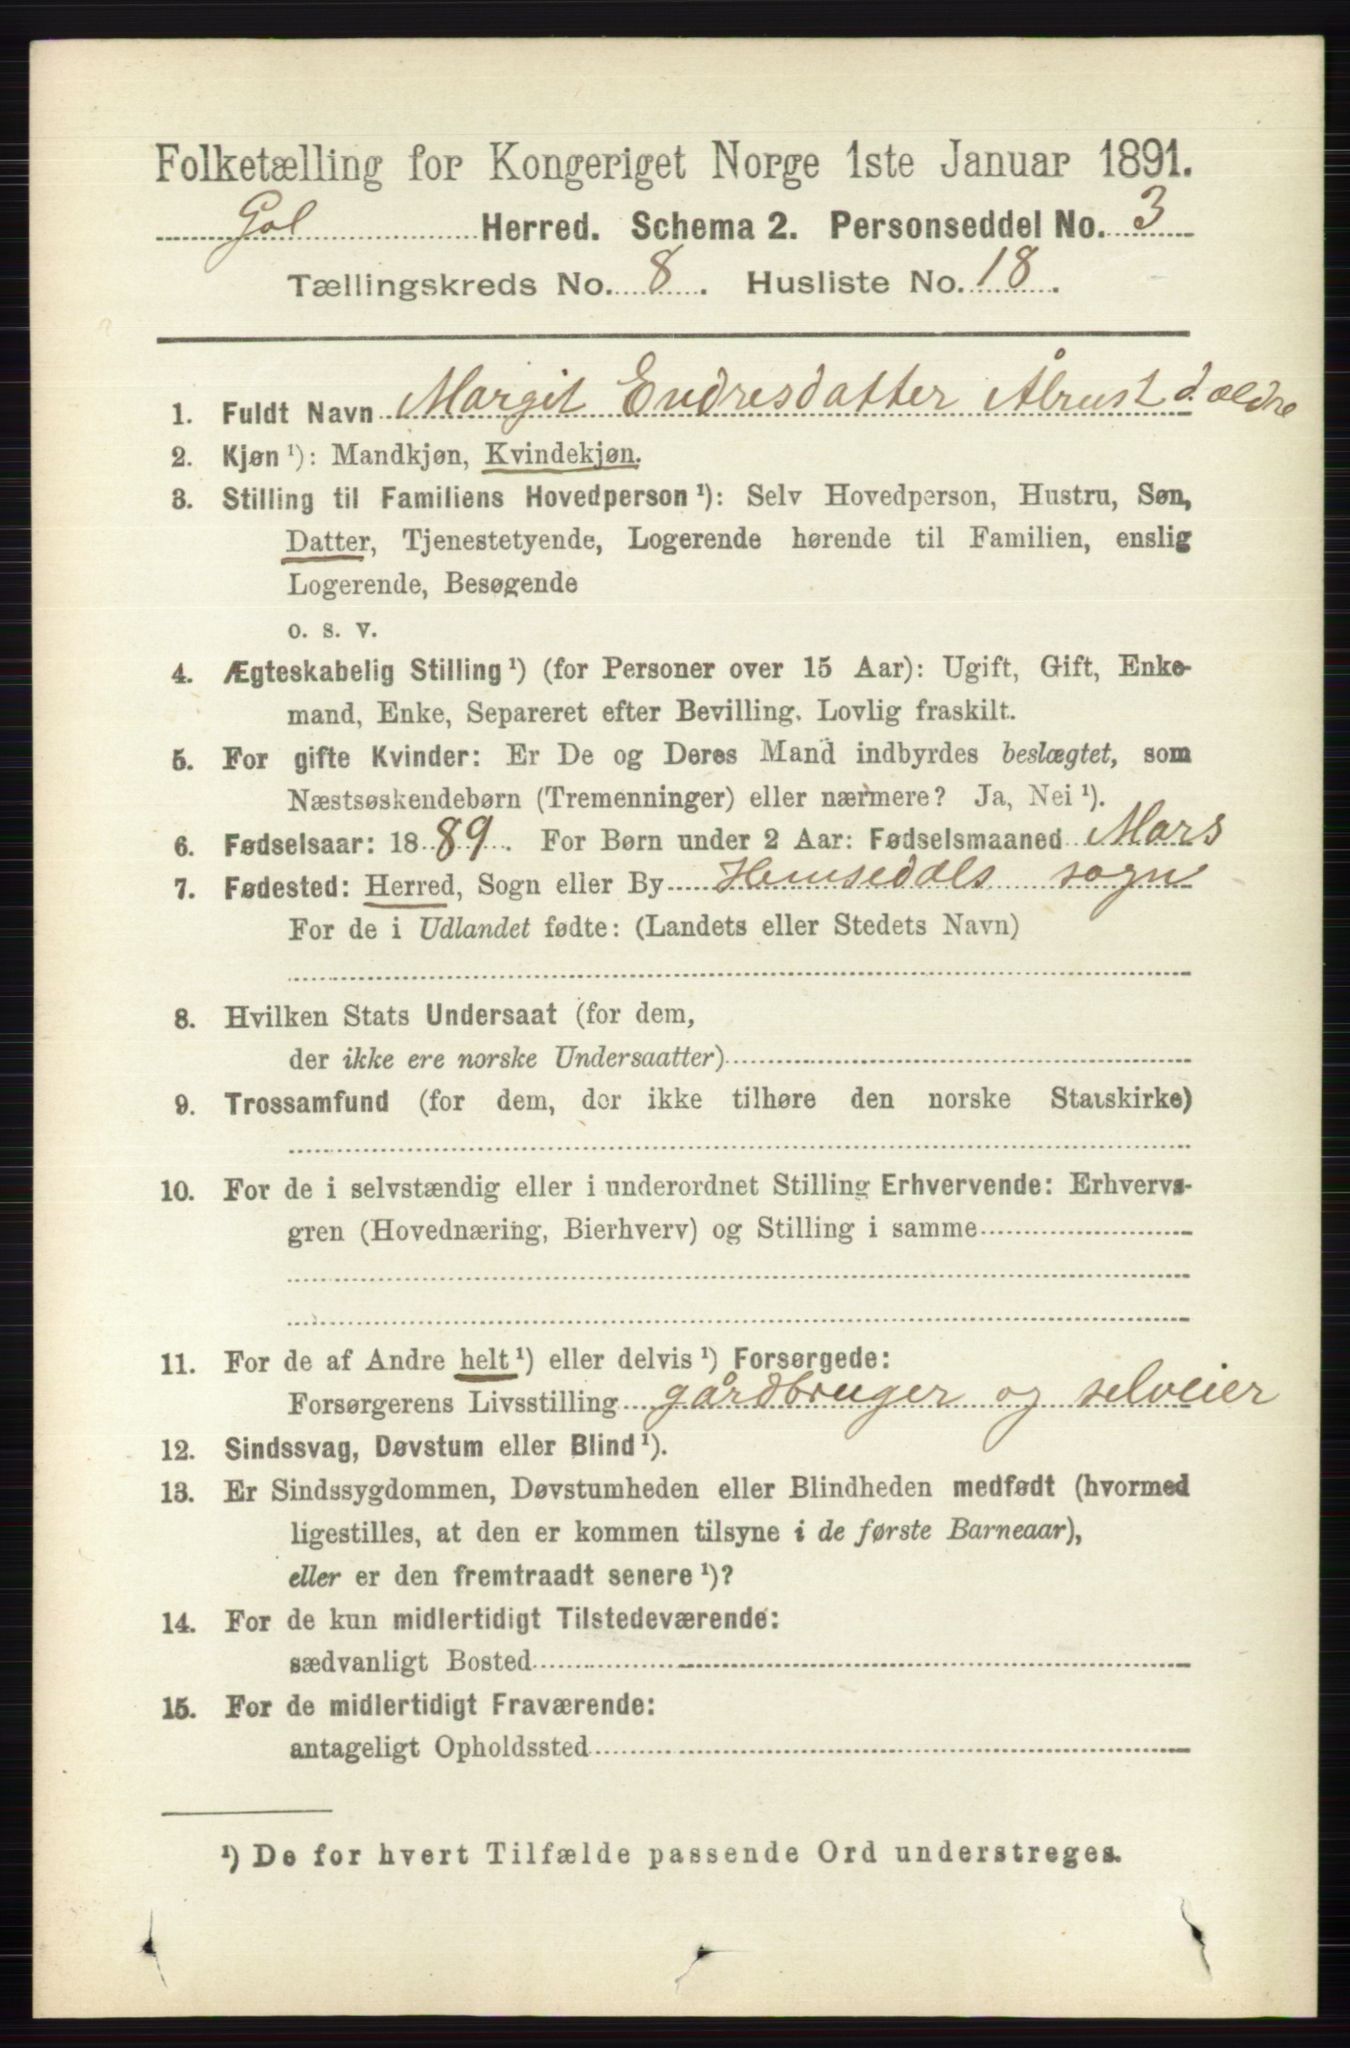 Folketælling for Kongeriget Norge 1ste Januar 1891.
Gol Herred. Schema 2. Personseddel No. 3
Tællingskreds No. 8. Husliste No. 18.
1. Fuldt Navn Margit Endresdatter Ålrust d. ældre
2. Kjøn ¹): Mandkjøn, Kvindekjøn.
3. Stilling til Familiens Hovedperson ¹): Selv Hovedperson, Hustru, Søn,
Datter, Tjenestetyende, Logerende hørende til Familien, enslig
Logerende, Besøgende
o. s. v.
4. Ægteskabelig Stilling ¹) (for Personer over 15 Aar): Ugift, Gift, Enke-
mand, Enke, Separeret efter Bevilling. Lovlig fraskilt.
5. For gifte Kvinder: Er De og Deres Mand indbyrdes beslægtet, som
Næstsøskendebørn (Tremenninger) eller nærmere? Ja, Nei ¹).
6. Fødselsaar: 1889. For Børn under 2 Aar: Fødselsmaaned Mars
7. Fødested: Herred, Sogn eller By Hemsedals sogn
For de i Udlandet fødte: (Landets eller Stedets Navn)
8. Hvilken Stats Undersaat (for dem,
der ikke ere norske Undersaatter)
9. Trossamfund (for dem, der ikke tilhøre den norske Statskirke)
10. For de i selvstændig eller i underordnet Stilling Erhvervende: Erhvervs-
gren (Hovednæring, Bierhverv) og Stilling i samme
11. For de af Andre helt ¹) eller delvis ¹) Forsørgede:
Forsørgerens Livsstilling gårdbruger og selveier
12. Sindssvag, Døvstum eller Blind ¹).
13. Er Sindssygdommen, Døvstumheden eller Blindheden medfødt (hvormed
ligestilles, at den er kommen tilsyne i de første Barneaar),
eller er den fremtraadt senere ¹)?
14. For de kun midlertidigt Tilstedeværende:
sædvanligt Bosted
15. For de midlertidigt Fraværende:
antageligt Opholdssted
¹) De for hvert Tilfælde passende Ord understreges.